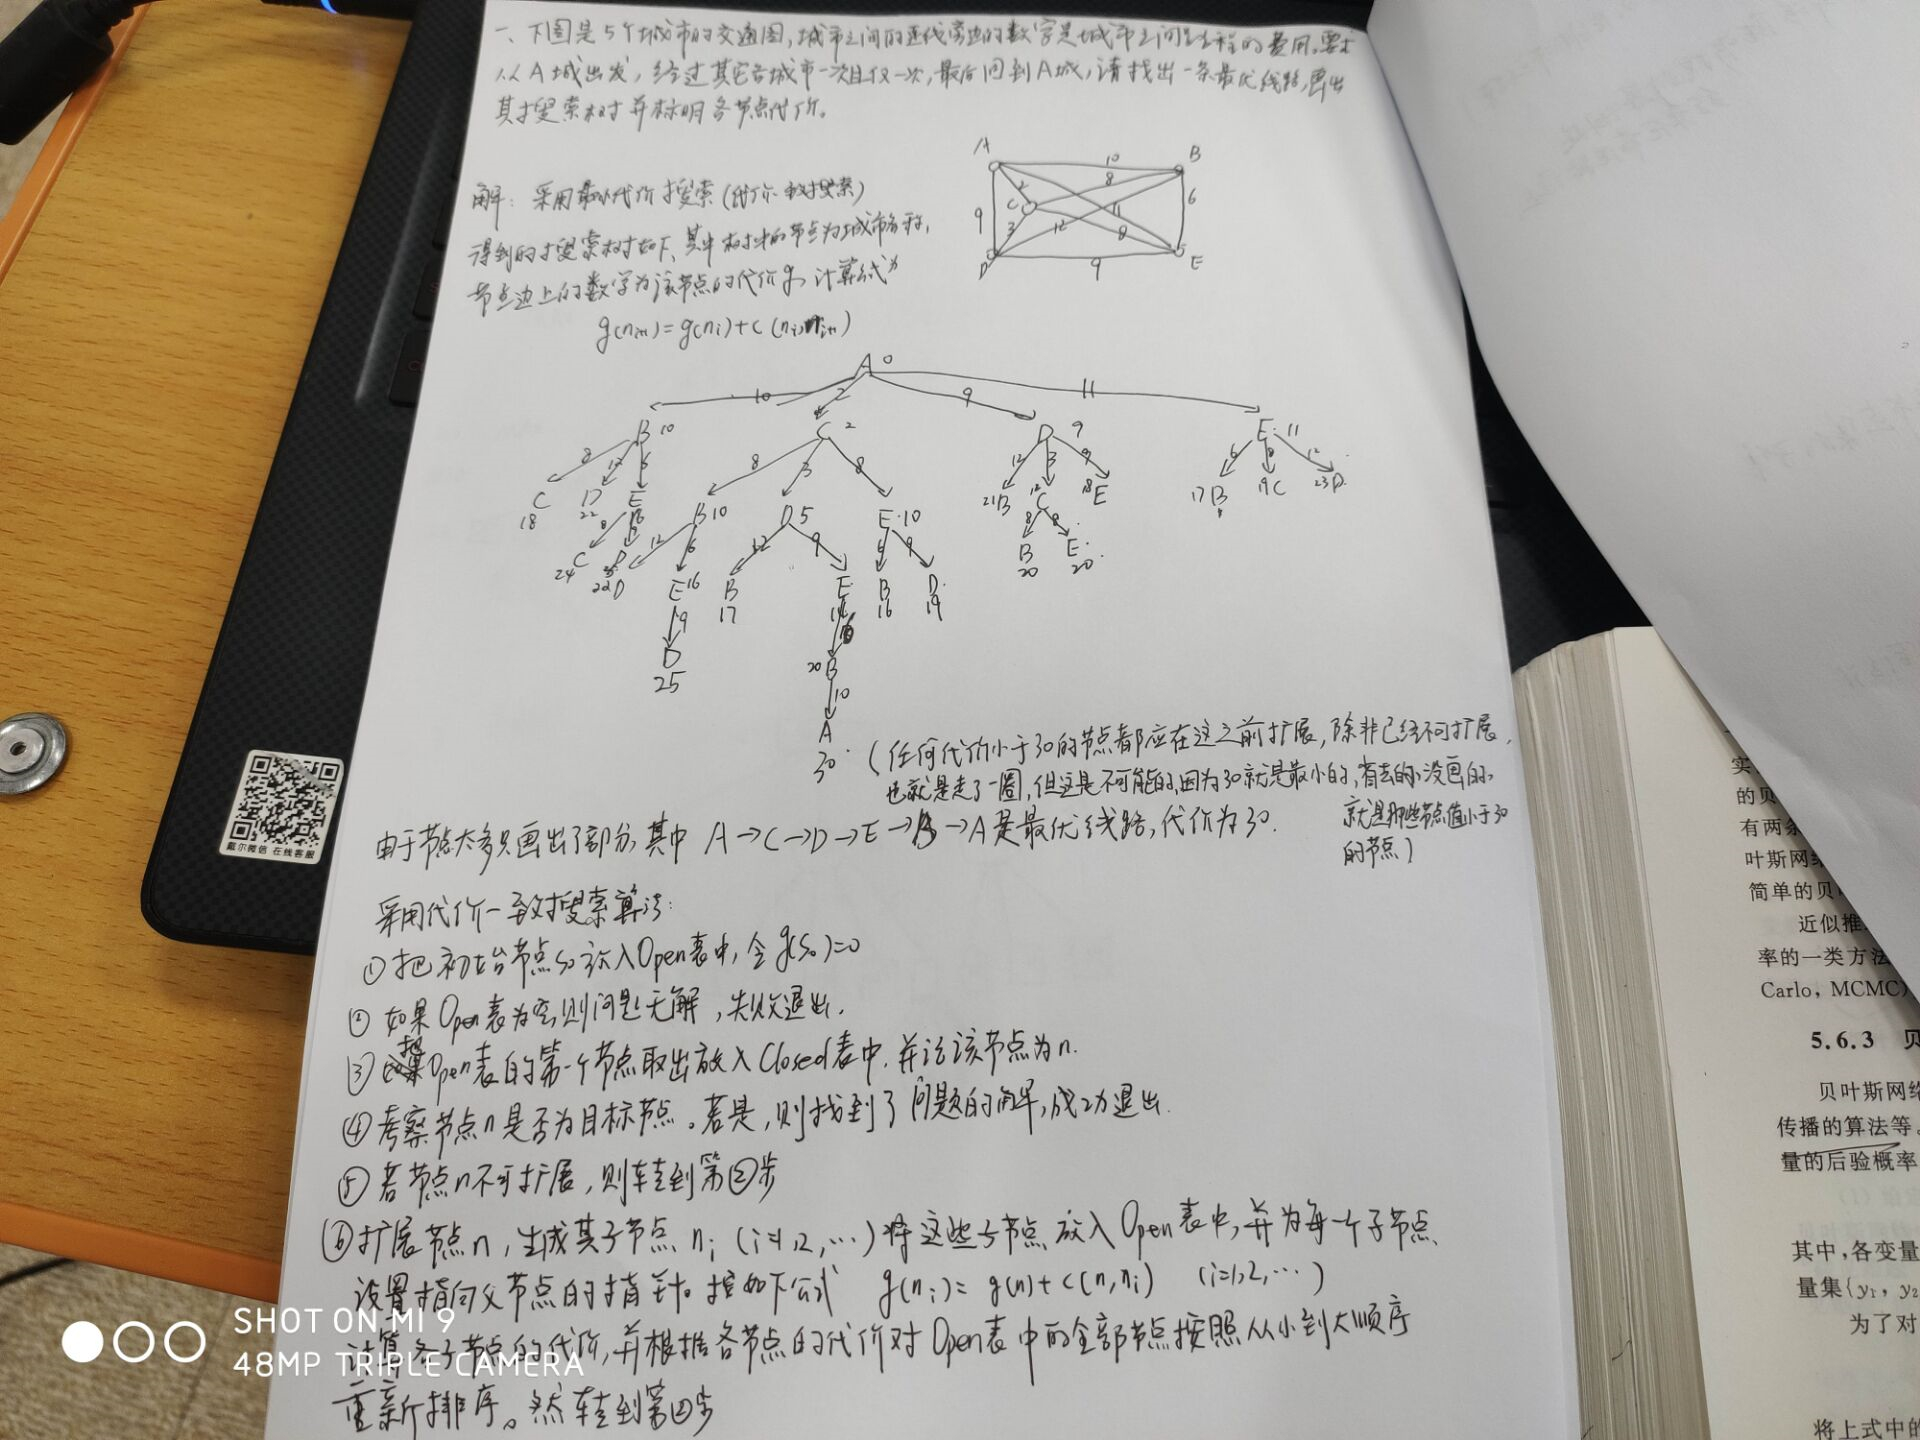 一、下图是5个城市的交通图,城市之间的连线旁边的数字是城市之间路程的费用,要求
从A城出发,经过其它各城市一次且仅一次,最后回到A城,请找出一条最优线路,画出
其搜索树并标明各节点代价。
A 10 B
8
2
C
9 3 12 11 8 6
D 9 E
解:采用最小代价搜索(代价一致搜索)
得到的搜索树如下,其中树中的节点为城市名称,
节点边上的数字为该节点的代价g,计算公式为
g(ni+1)=g(ni)+c(ni,ni+1)
A 0
10 2 9 11
B 10 C 2 D 9 E 11
8 12 6 8 3 8 12 3 9 6 8 12
C D E B 10 D 5 E 10 21B C E 17B 19C 23D
18 22 16 12 18
8 9 12 6 12 9 6 9 8 8
C D D E 16 B E B D B E
24 25 22 17 14 16 19 20 20
9
D 20 B
25 10
A
30
(任何代价小于30的节点都应在这之前扩展,除非已经不可扩展,
也就是走了一圈,但这是不可能的,因为30就是最小的,省去的没画的
就是那些节点值小于30
的节点)
由于节点太多只画出了部分,其中 A→C→D→E→B→A是最优线路,代价为30.
采用代价一致搜索算法:
①把初始节点S0放入Open表中,令g(S0)=0
②如果Open表为空,则问题无解,失败退出.
③把Open表的第一个节点取出放入Closed表中.并记该节点为n.
④考察节点n是否为目标节点。若是,则找到了问题的解,成功退出.
⑤若节点n不可扩展,则转到第②步
⑥扩展节点n,生成其子节点ni(i=1,2,…)将这些子节点放入Open表中,并为每一个子节点
设置指向父节点的指针。按如下公式 g(ni)=g(n)+c(n,ni) (i=1,2,…)
计算各子节点的代价,并根据各节点的代价对Open表中的全部节点按照从小到大顺序
重新排序。然转到第②步
戴尔微信 在线客服
SHOT ON MI 9
48MP TRIPLE CAMERA
的贝
有两条
叶斯网络
简单的贝
近似推
率的一类方法
Carlo, MCMC)
5.6.3 贝
贝叶斯网络
传播的算法等。
量的后验概率
其中,各变量
量集{y1, y2
为了对
将上式中的